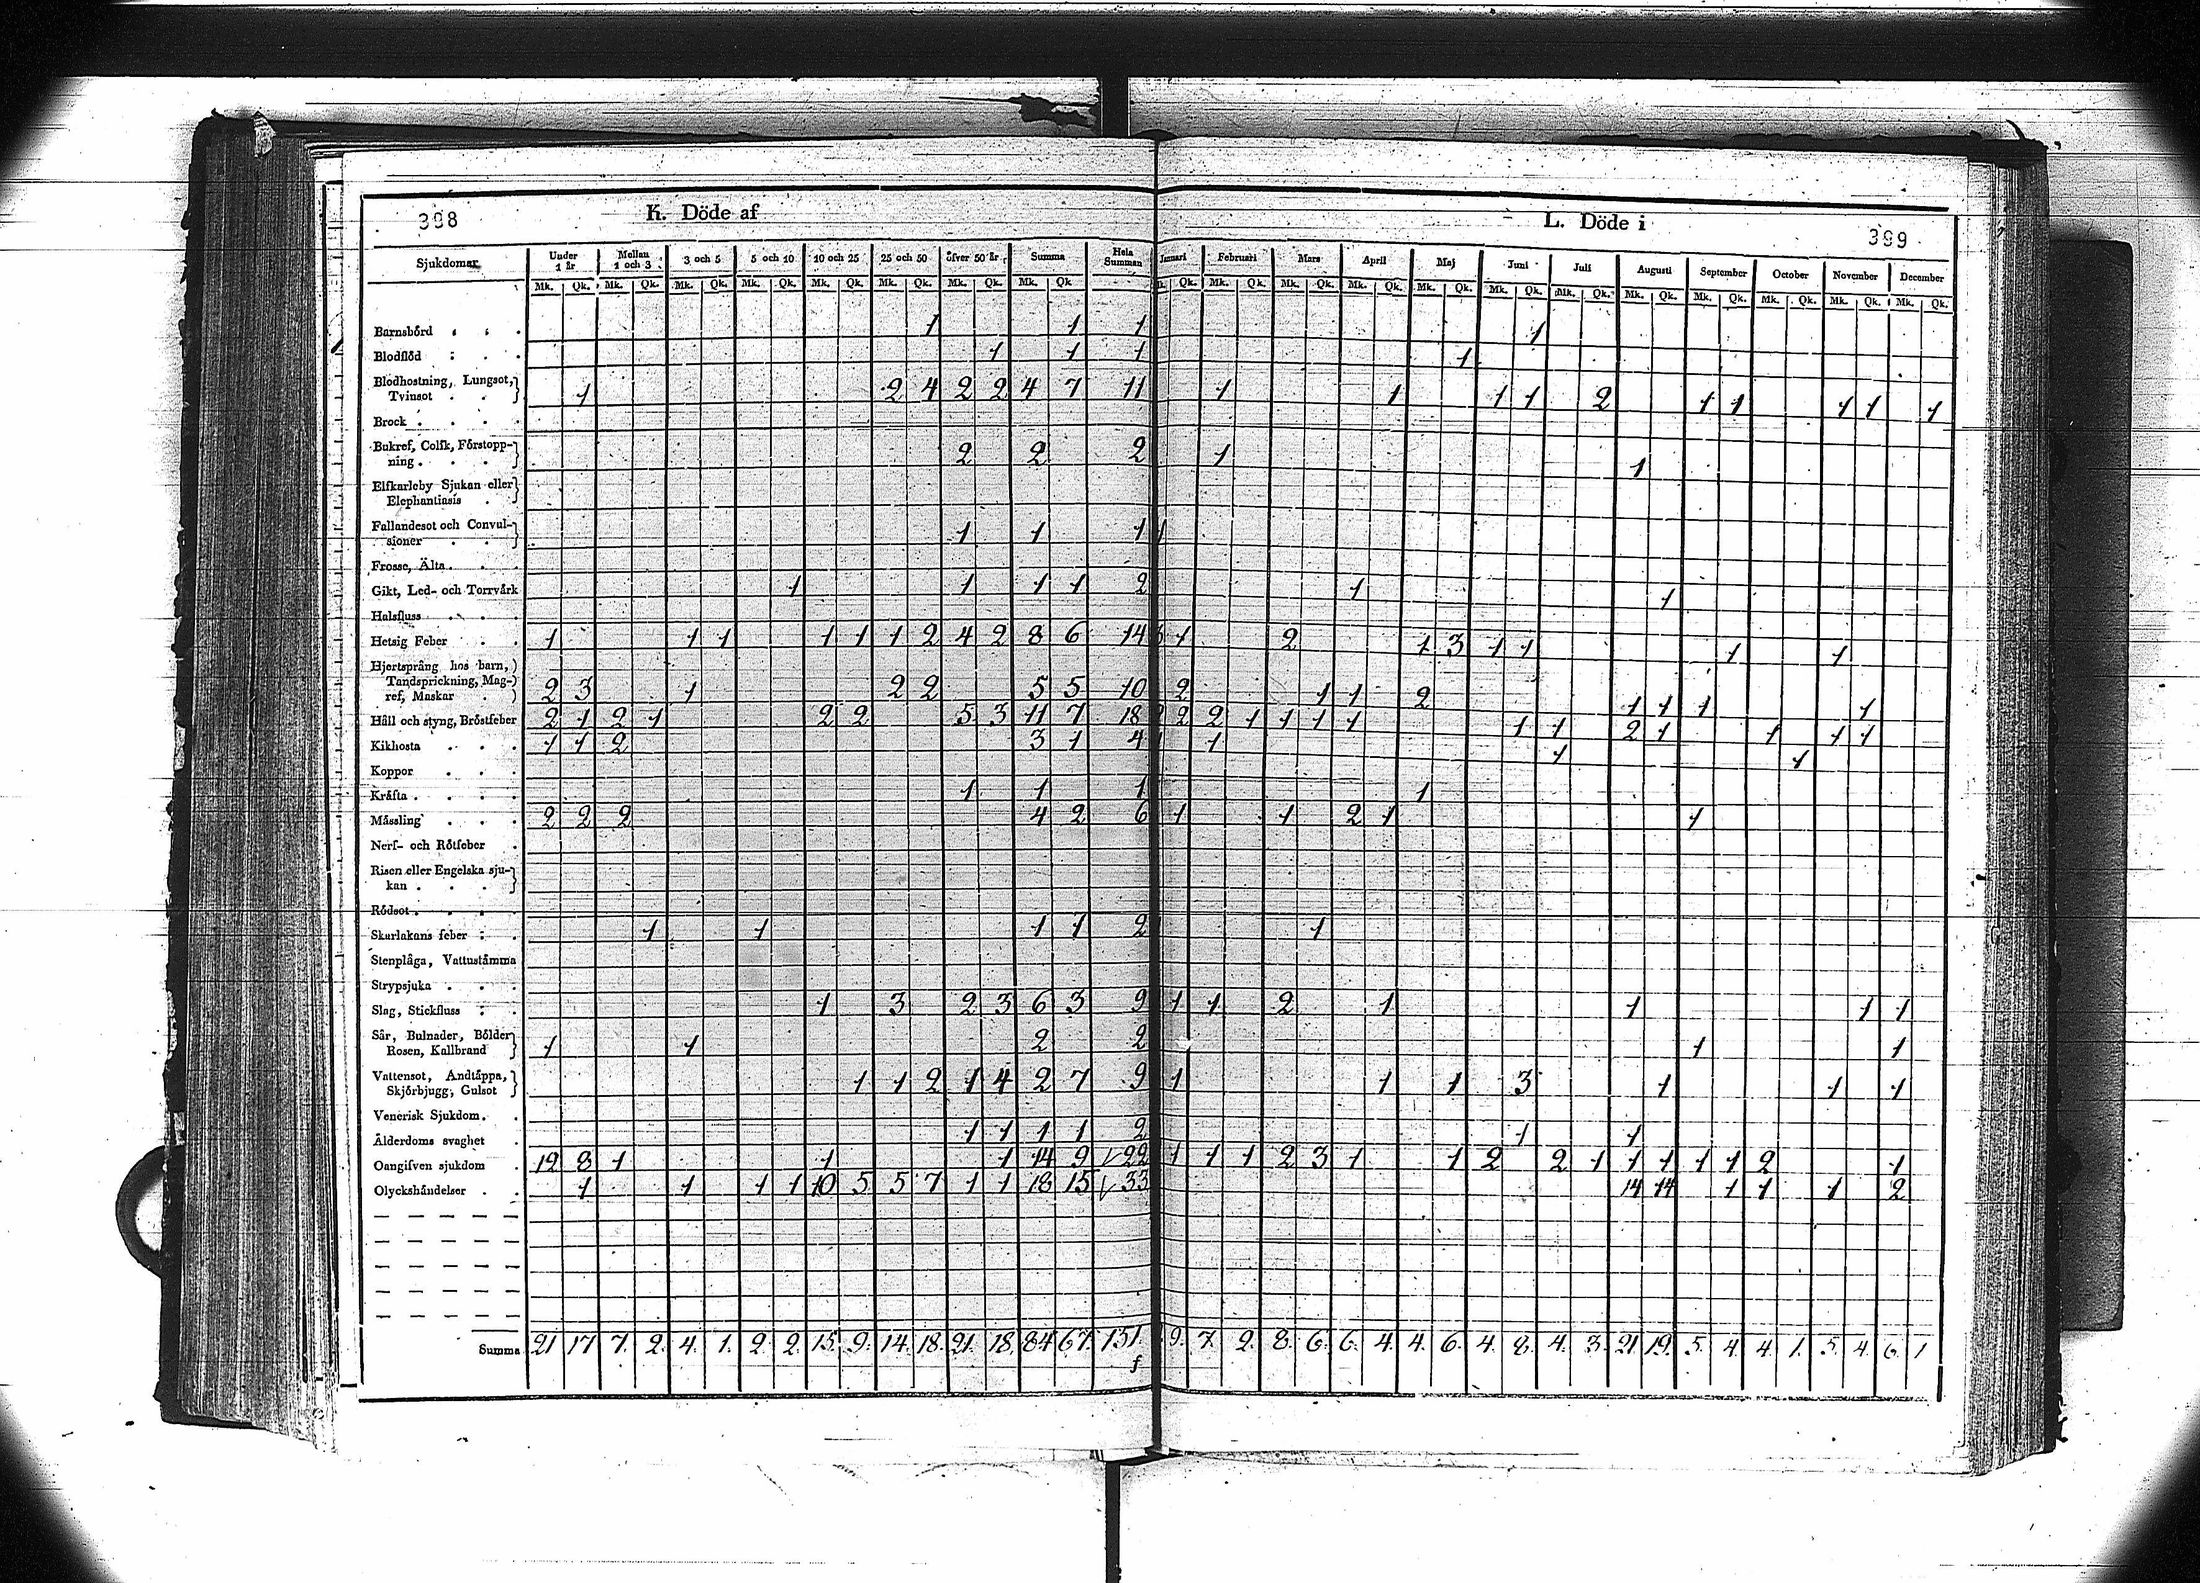 398 K. Döde af
L. Döde i 399
Sjukdomar Under 1 år Mellan 1 och 3 3 och 5 5 och 10 10 och 25 25 och 50 öfver 50 år Summa Hela Summan
Januari Februari Mars April Maj Juni Juli Augusti September October November December
Mk. Qk. Mk. Qk. Mk. Qk. Mk. Qk. Mk. Qk. Mk. Qk. Mk. Qk. Mk. Qk
Qk. Mk. Qk. Mk. Qk. Mk. Qk. Mk. Qk. Mk. Qk. Mk. Qk. Mk. Qk. Mk. Qk. Mk. Qk. Mk. Qk. Mk. Qk.
Barnsbörd 1 1 1 1
Blodflöd 1 1 1 1
Blodhostning, Lungsot,
Tvinsot 1 2 4 2 2 4 7 11 1 1 1 1 2 1 1 1 1 1
Brock
Bukref, Colik, Förstopp-
ning 2 2 2 1 1
Elfkarleby Sjukan eller
Elephantiasis
Fallandesot och Convul-
sioner 1 1 1 1
Frosse, Älta
Gikt, Led- och Torrvärk 1 1 1 1 2 1 1
Halsfluss
Hetsig Feber 1 1 1 1 1 1 2 4 2 8 6 14 3 1 2 1 3 1 1 1 1
Hjertsprång hos barn,
Tandsprickning, Mag-
ref, Maskar 2 3 1 2 2 5 5 10 2 1 1 2 1 1 1 1
Håll och styng, Bröstfeber 2 1 2 1 2 2 5 3 11 7 18 2 2 2 1 1 1 1 1 1 2 1 1 1 1
Kikhosta 1 1 2 3 1 4 1 1 1 1
Koppor
Kräfta 1 1 1 1
Mässling 2 2 2 4 2 6 1 1 2 1 1
Nerf- och Rötfeber
Risen eller Engelska sju-
kan
Rödsot
Skarlakans feber 1 1 1 1 2 1
Stenplåga, Vattustämma
Strypsjuka
Slag, Stickfluss 1 3 2 3 6 3 9 1 1 2 1 1 1 1
Sår, Bulnader, Bölder
Rosen, Kallbrand 1 1 2 2 1 1
Vattensot, Andtäppa,
Skjörbjugg, Gulsot 1 1 2 1 4 2 7 9 1 1 1 3 1 1 1
Venerisk Sjukdom
Ålderdoms svaghet 1 1 1 1 2 1 1
Oangifven sjukdom 12 8 1 1 1 14 9 22 1 1 1 2 3 1 1 2 2 1 1 1 1 1 2 1
Olyckshändelser 1 1 1 1 10 5 5 7 1 1 18 15 33 14 14 1 1 1 2
Summa 21 17 7. 2. 4. 1. 2. 2. 15. 9. 14. 18. 21. 18. 84 67. 151. 9. 7. 2. 8. 6. 6. 4. 4. 6. 4. 8. 4. 3. 21 19. 5. 4. 4. 1. 5. 4. 6. 1